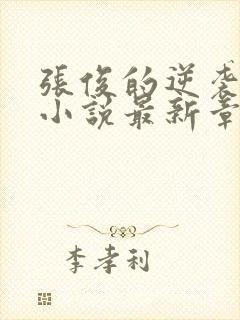 張俊的逆袭
小説最新章
李孝利